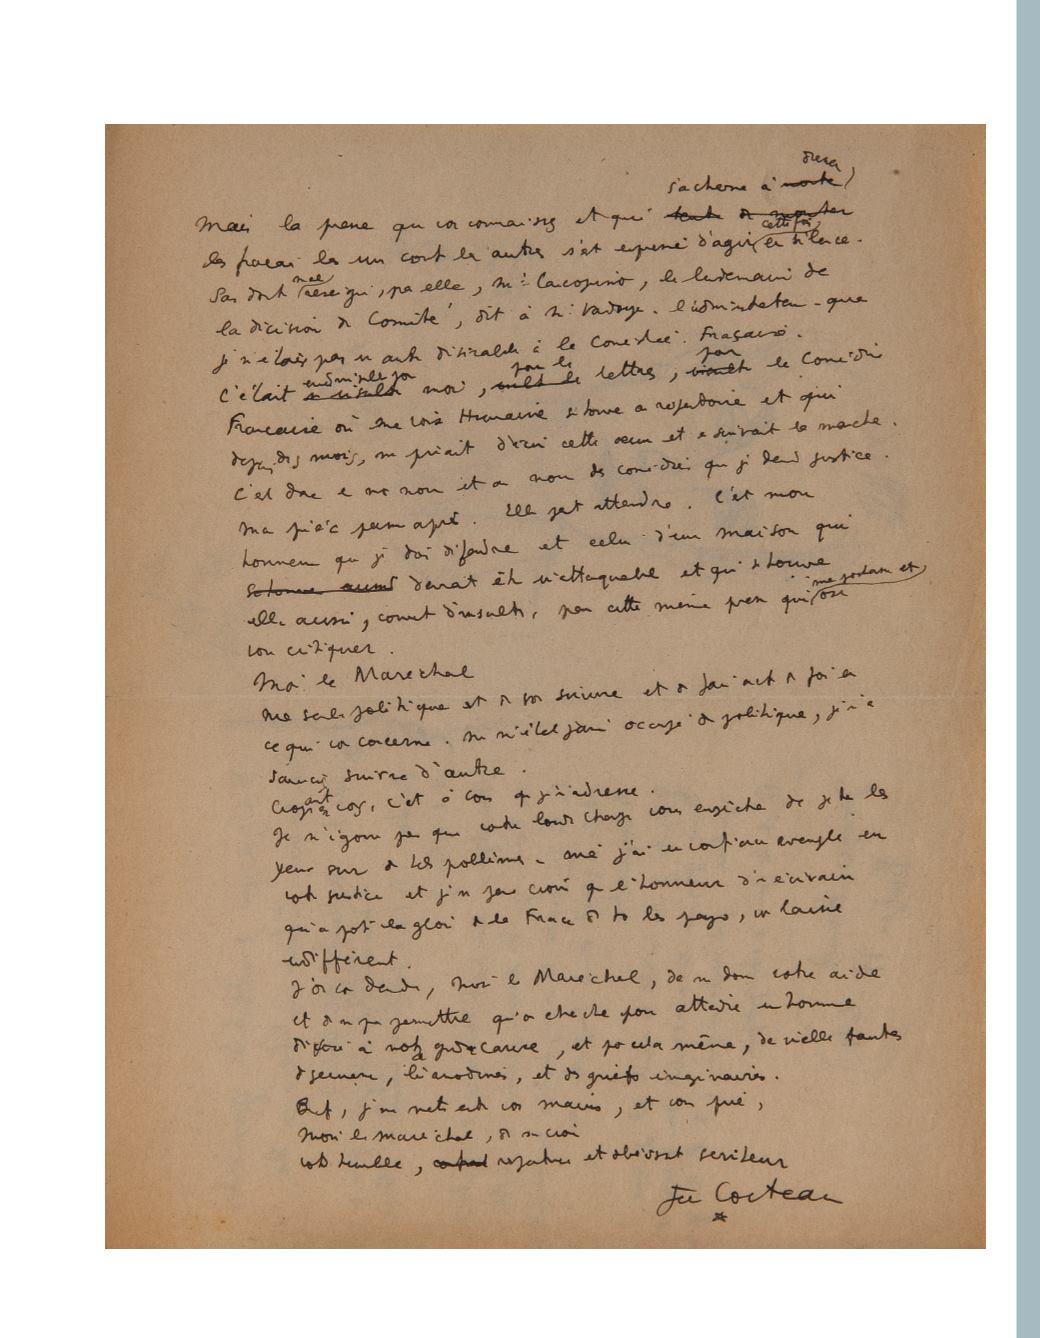 s'acharne à dresser
Mais la presse que vous connaissez et qui
les français les uns contre les autres s'est empressé d'agir cette fois en silence.
Sans doute mal renseigné, par elle, Mr Carcopino, le lendemain de
la décision du Comité, dit à Mr Vaudoyer - l'administrateur - que
je n'étais pas un auteur désirable à la Comédie Française.
C'était moi, pour les lettres, pour la Comédie
Française où ma voix Humaine se trouve au répertoire et qui
depuis des mois, me priait d'écrire cette œuvre et en suivait la marche.
C'est donc en mon nom et au nom des comédiens que je demande justice.
ma pièce passe après. Elle peut attendre. C'est mon
honneur que je dois défendre et celui d'une maison qui
devrait être inattaquable et qui se trouve
elle aussi, couverte d'insultes, par cette même presse qui ose me sortant et
vous critiquer.
le Maréchal
ma seule politique est de vous suivre et de faire acte de foi en
ce qui vous concerne. ne m'étant jamais occupé de politique, je n'en
saurais suivre d'autre.
vous, c'est à vous que je m'adresse.
Je n'ignore pas que votre lourde charge vous empêche de jeter les
yeux sur de tels problèmes - mais j'ai une confiance aveugle en
votre justice et je ne peux croire que l'honneur d'un écrivain
qui a porté la gloire de la France de tous les pays, vous laisse
indifférent.
J'ose vous demander, le Maréchal, de me donner votre aide
et de ne pas permettre qu'on cherche pour atteindre un homme
à notre cause, et par cela même, de vieilles fautes
de jeunesse, anodines, et des griefs imaginaires.
Bref, je me mets entre vos mains, et vous prie,
le maréchal, de me croire
votre humble, respectueux et obéissant serviteur
Jean Cocteau
*